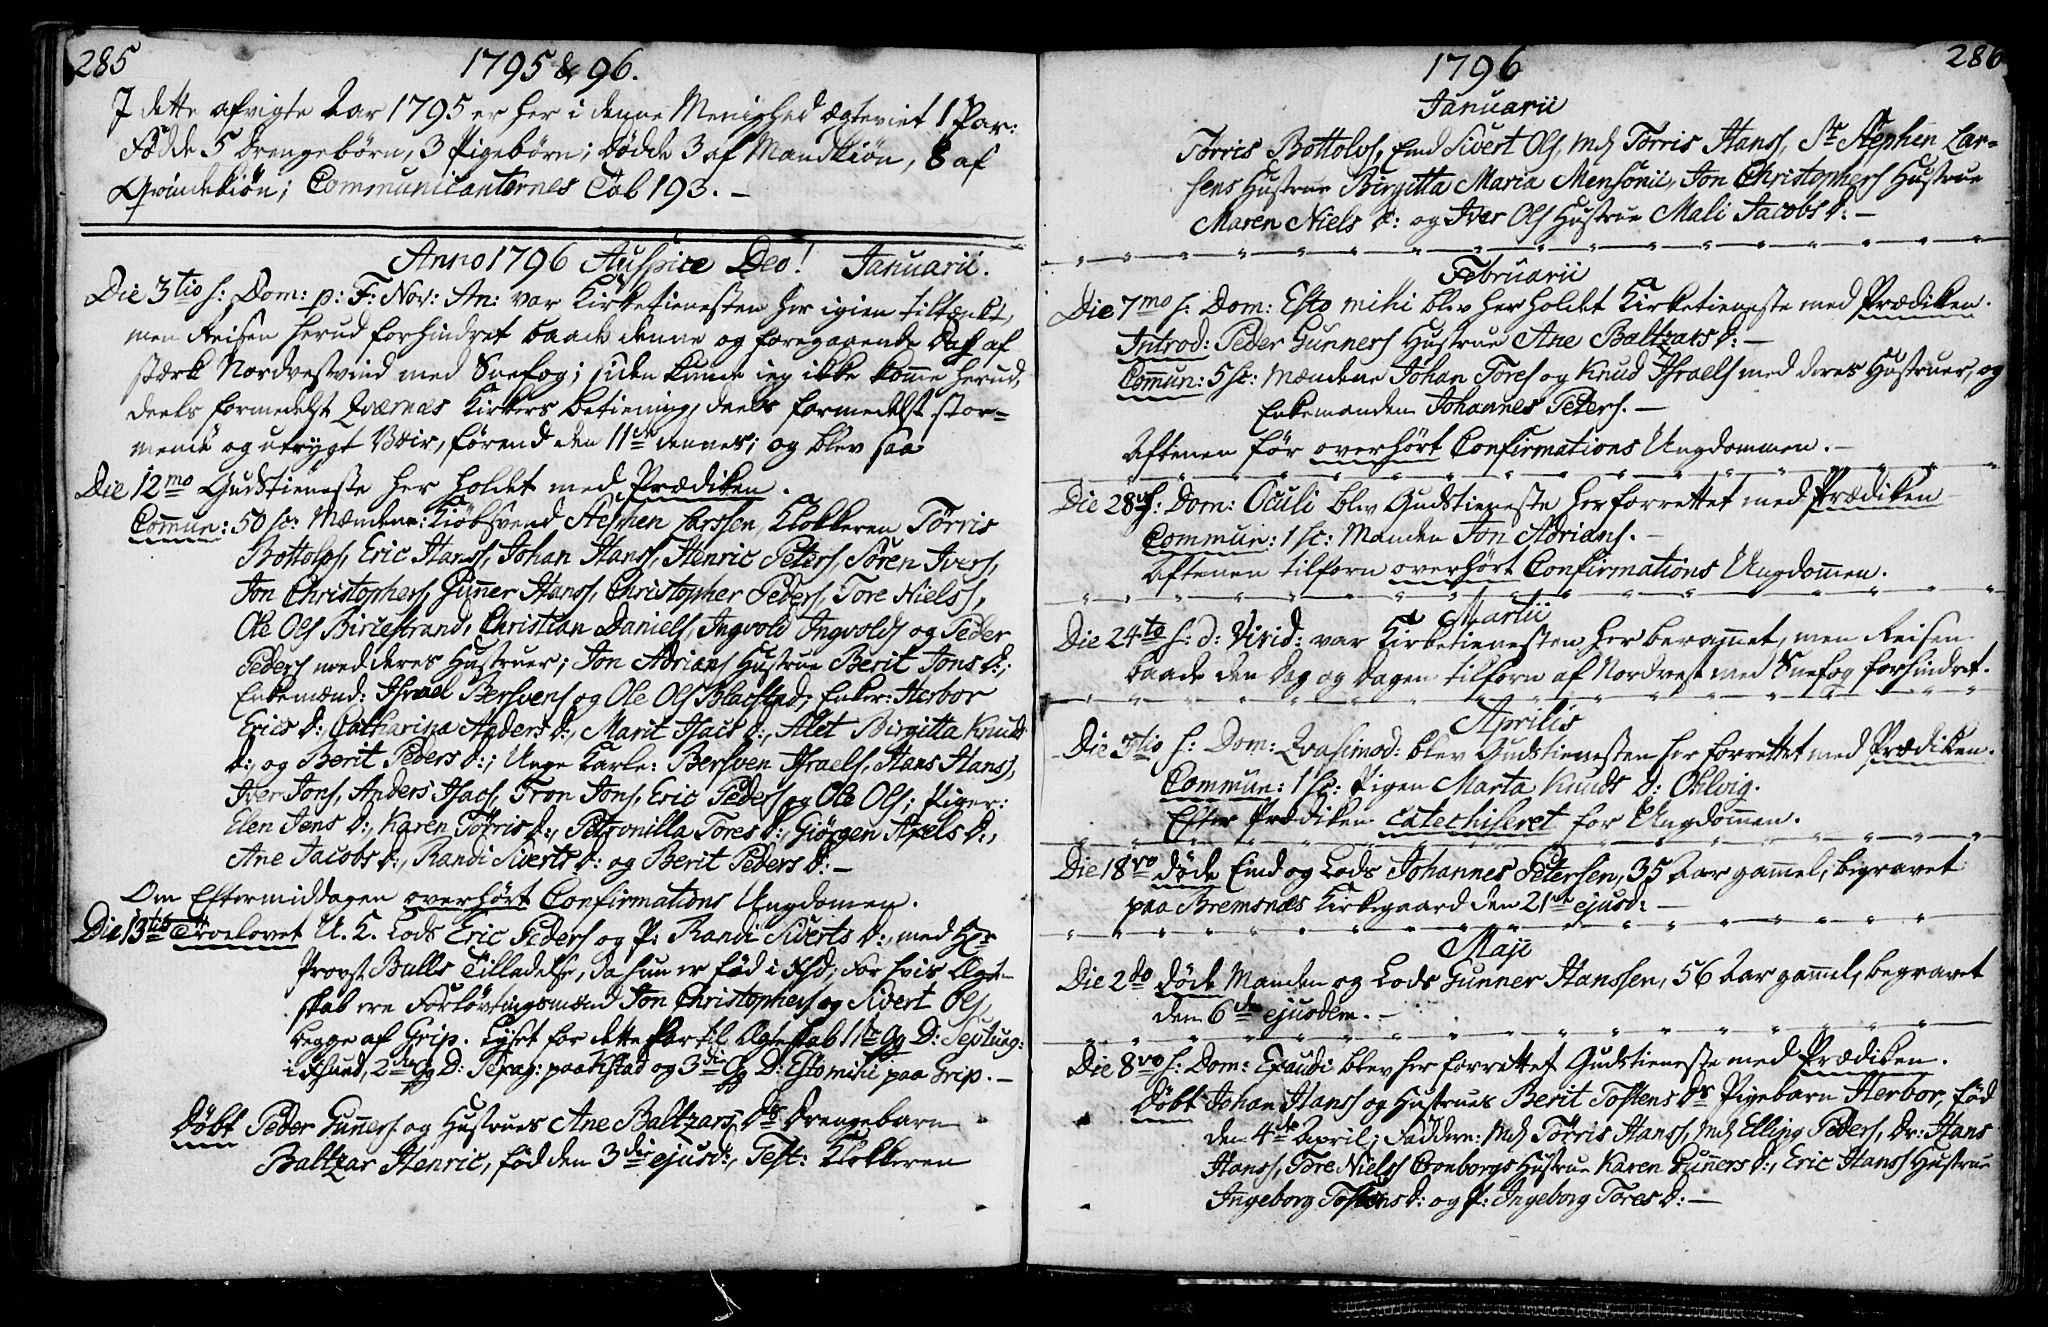 285
1795 & 96.
I dette afvigte Aar 1795 er her i denne Menighed ægteviet 1 Par:
Fødde 5 Drengebörn, 3 Pigebörn; Dödde 3 af Mandkiön, 8 af
Qvindekiön; Communicanternes Tal 193. –
Anno 1796 Auspice Deo! Januarii.
Die 3tio s: Dom: p: F: Nov: An: var Kirketienesten her igien tiltænkt,
men Reisen herud forhindret baade denne og foregaaende Dag af
stærk Nordvestvind med Snefog; siden kunde ieg ikke komme herud,
deels formedelst Qværnæs Kirkes betiening, deels formedelst stor-
mende og utrygt Væir, förend den 11te dennes; og blev saa
Die 12mo Gudstieneste her holdet med Prædiken.
Commun: 50 sc: Mændene: Kiöbsvend Stephen Larssen, Klokkeren Törris
Bottolvs, Eric Hanss, Johan Hanss, Henric Peters, Sören Ivers,
Jon Christophers, Gunner Hanss, Christopher Peders, Tore Nielss,
Ole Ols Bircestrand, Christian Daniels, Ingvold Ingvolds og Peder
Peders med deres Hustruer; Jon Adrians Hustrue Berit Jons D:;
Enkemænd: Israel Bersvens og Ole Ols Blacstad; Enker: Herbor
Erics D: Catharina Anders D:, Marit Isacs D:, Alet Birgitta Knuds
D:, og Berit Peders D:; Unge Karle: Bersven Israels, Hans Hanss,
Iver Jons, Anders Isacs, Tron Jons, Eric Peders og Ole Ols; Piger:
Elen Jens D:, Karen Törris D:, Petronilla Tores D:, Giörgen Axels D:,
Ane Jacobs D:, Randi Siverts D: og Berit Peders D: –
Om Eftermiddagen overhört Confirmations Ungdomen.
Die 13tio Troelovet U. K. Lods Eric Peders og P: Randi Siverts D:, med Hr
Provst Bulls Tilladelse, da hun er föd i Xsd; for hvis Ægte-
skab ere Forlövtingsmænd Jon Christophers og Sivert Ols,
begge af Grip. Lyset for dette Par til Ægteskab 1ste Gg D: Septuag:
i Xsund, 2den Gg D: Sexag: paa Kstad og 3die Gg D: Esto mihi paa Grip. –
Döbt Peder Gunners og Hustrues Ane Baltzars Ds Drengebarn
Baltzar Henric, föd den 3die ejusd:, Test: Klokkeren
286
1796
Januarii
Törris Bottolvs, Emd Sivert Ols, Md Törris Hanss, Sr Stephen Lar-
sens Hustrue Birgitta Maria Mensonii, Jon Christophers Hustrue
Maren Niels D: og Iver Ols Hustrue Mali Jacobs D: –
Februarii
Die 7mo s: Dom: Esto mihi blev her holdet Kirketieneste med Prædiken.
Introd: Peder Gunners Hustrue Ane Baltzars D: –
Commun: 5 sc: Mændene Johan Tores og Knud Israels med deres Hustruer, og
Enkemanden Johannes Peters. –
Aftenen för overhört Confirmations Ungdommen. –
Die 28 s: Dom: Oculi blev Gudstieneste her forrettet med Prædiken
Commun: 1 sc: Manden Jon Adrians. –
Aftenen tilforn overhört Confirmations Ungdommen.
Martii
Die 24to s: d: Virid: var Kirketienesten her berammet, men Reisen
baade den Dag og Dagen tilforn af Nordvest med Snefog forhindret.
Aprilis
Die 3tio s: Dom: Qvasimod: blev Gudstienesten her forrettet med Prædiken.
Commun: 1 sc: Pigen Marta Knuds D: Ohlvig.
Efter Prædiken catechiseret for Ungdommen.
Die 18vo döde Emd og Lods Johannes Petersen, 35 Aar gammel, begravet
paa Bremsnæs Kirkegaard den 21de ejusd: –
Maji
Die 2do döde Manden og Lods Gunner Hanssen, 56 Aar gammel, begravet
den 6te ejusdem. –
Die 8vo s: Dom: Exaudi blev her forrettet Gudstieneste med Prædiken.
Döbt Johan Hanss og Hustrues Berit Tostens Ds Pigebarn Herbor, föd
den 4de April; Faddere: Md Törris Hanss, Md Elling Peders, Dr: Hans
Hanss, Tore Nielss Cronborgs Hustrue Karen Gunners D:, Eric Hanss Hustrue
Ingeborg Tostens D: og P: Ingeborg Tores D: –